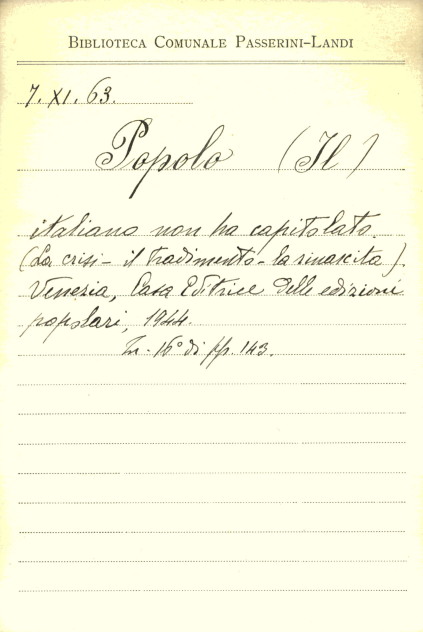 BIBLIOTECA COMUNALE PASSERINI-LANDI
7. XI. 63.
Popolo (Il)
italiano non ha capitolato.
(La crisi - il tradimento - la rinascita).
Venezia, Casa Editrice delle edizioni
popolari, 1944.
In-16° di pp. 143.